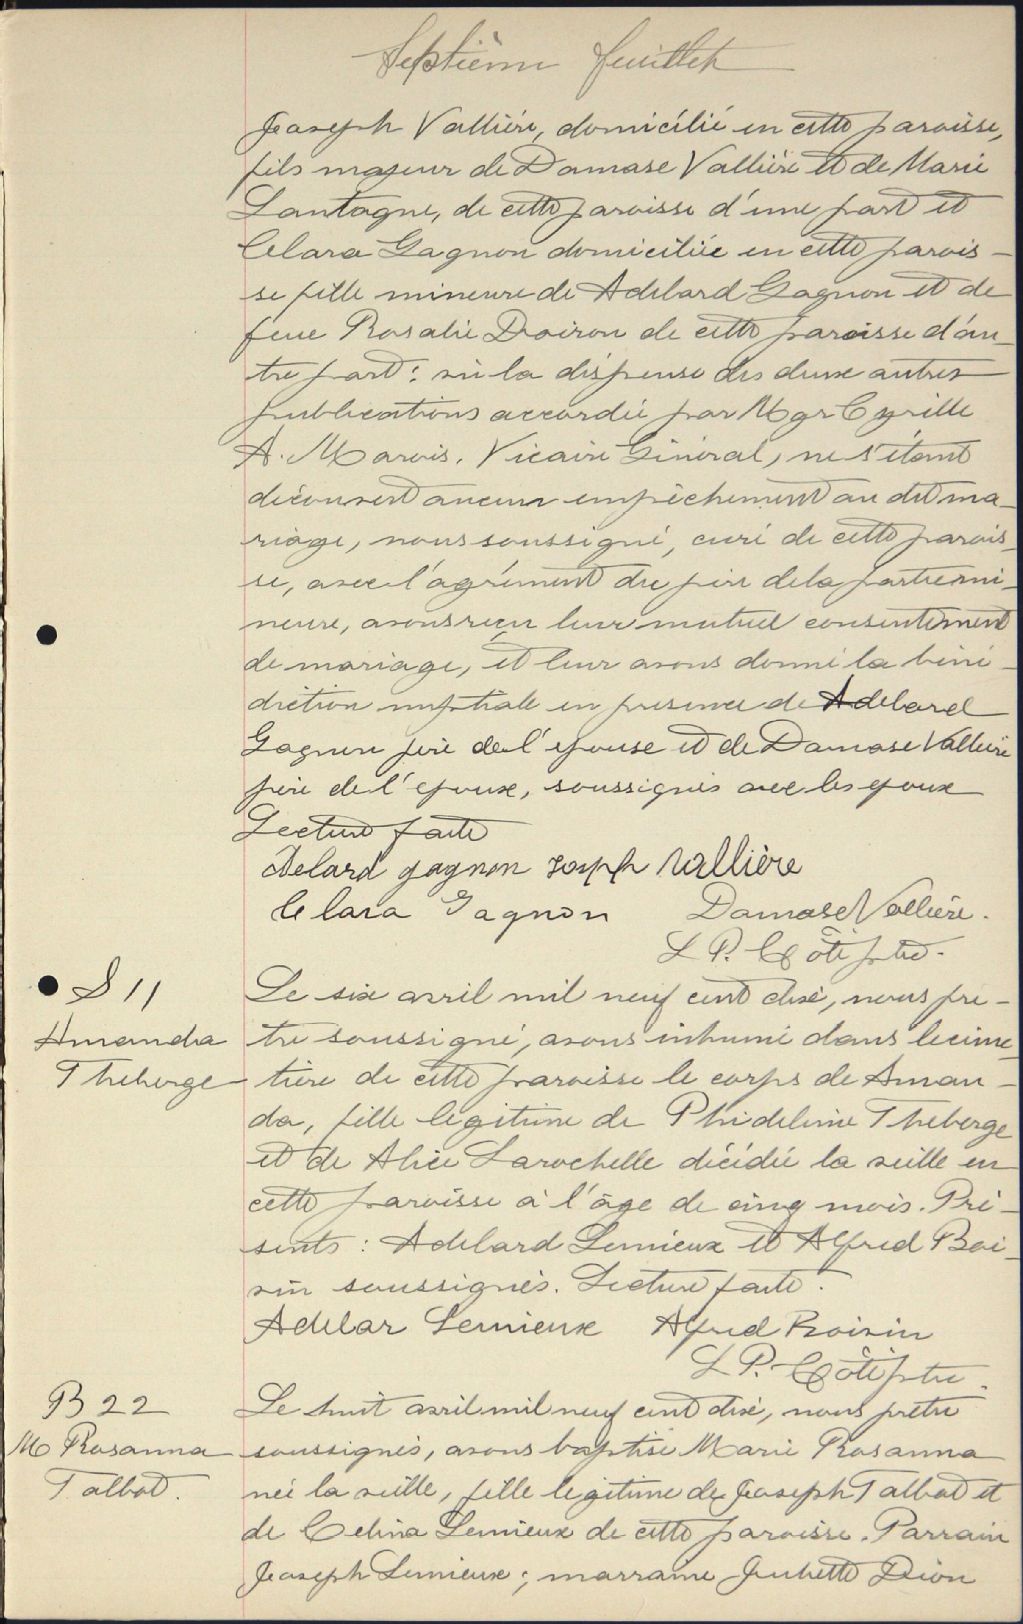 Septième feuillet
Joseph Vallière, domicilié en cette paroisse,
fils majeur de Damase Vallière et de Marie
Lantagne, de cette paroisse d'une part et
Clara Gagnon domiciliée en cette parois-
se fille mineure de Adelard Gagnon et de
feue Rosalie Doiron de cette paroisse d'au-
tre part: vu la dispense des deux autres
publications accordée par Mgr Cyrille
A. Marois, Vicaire Général, ne s'étant
découvert aucun empêchement au dit ma-
riage, nous soussigné, curé de cette parois-
se, avec l'agrément du père de la partie mi-
neure, avons reçu leur mutuel consentement
de mariage, et leur avons donné la béné-
diction nuptiale en présence de Adelard
Gagnon père de l'épouse et de Damase Vallière
père de l'époux, soussignés avec les époux
Lecture faite
Adelard gagnon Joseph Vallière
Clara Gagnon Damase Vallière.
L P. Côté ptre.
S 11
Amanda
Theberge
Le six avril mil neuf cent dix, nous prê-
tre soussigné, avons inhumé dans le cime-
tière de cette paroisse le corps de Aman-
da, fille légitime de Phidelime Theberge
et de Alice Larochelle décédée la veille en
cette paroisse à l'âge de cinq mois. Pré-
sents: Adelard Lemieux et Alfred Boi-
vin soussignés. Lecture faite.
Adelar Lemieux Alfred Boivin
L P. Côté ptre.
B 22
M Rosanna
Talbot.
Le huit avril mil neuf cent dix, nous prêtre
soussignés, avons baptisé Marie Rosanna
née la veille, fille légitime de Joseph Talbot et
de Celina Lemieux de cette paroisse. Parrain
Joseph Lemieux; marraine Juliette Dion